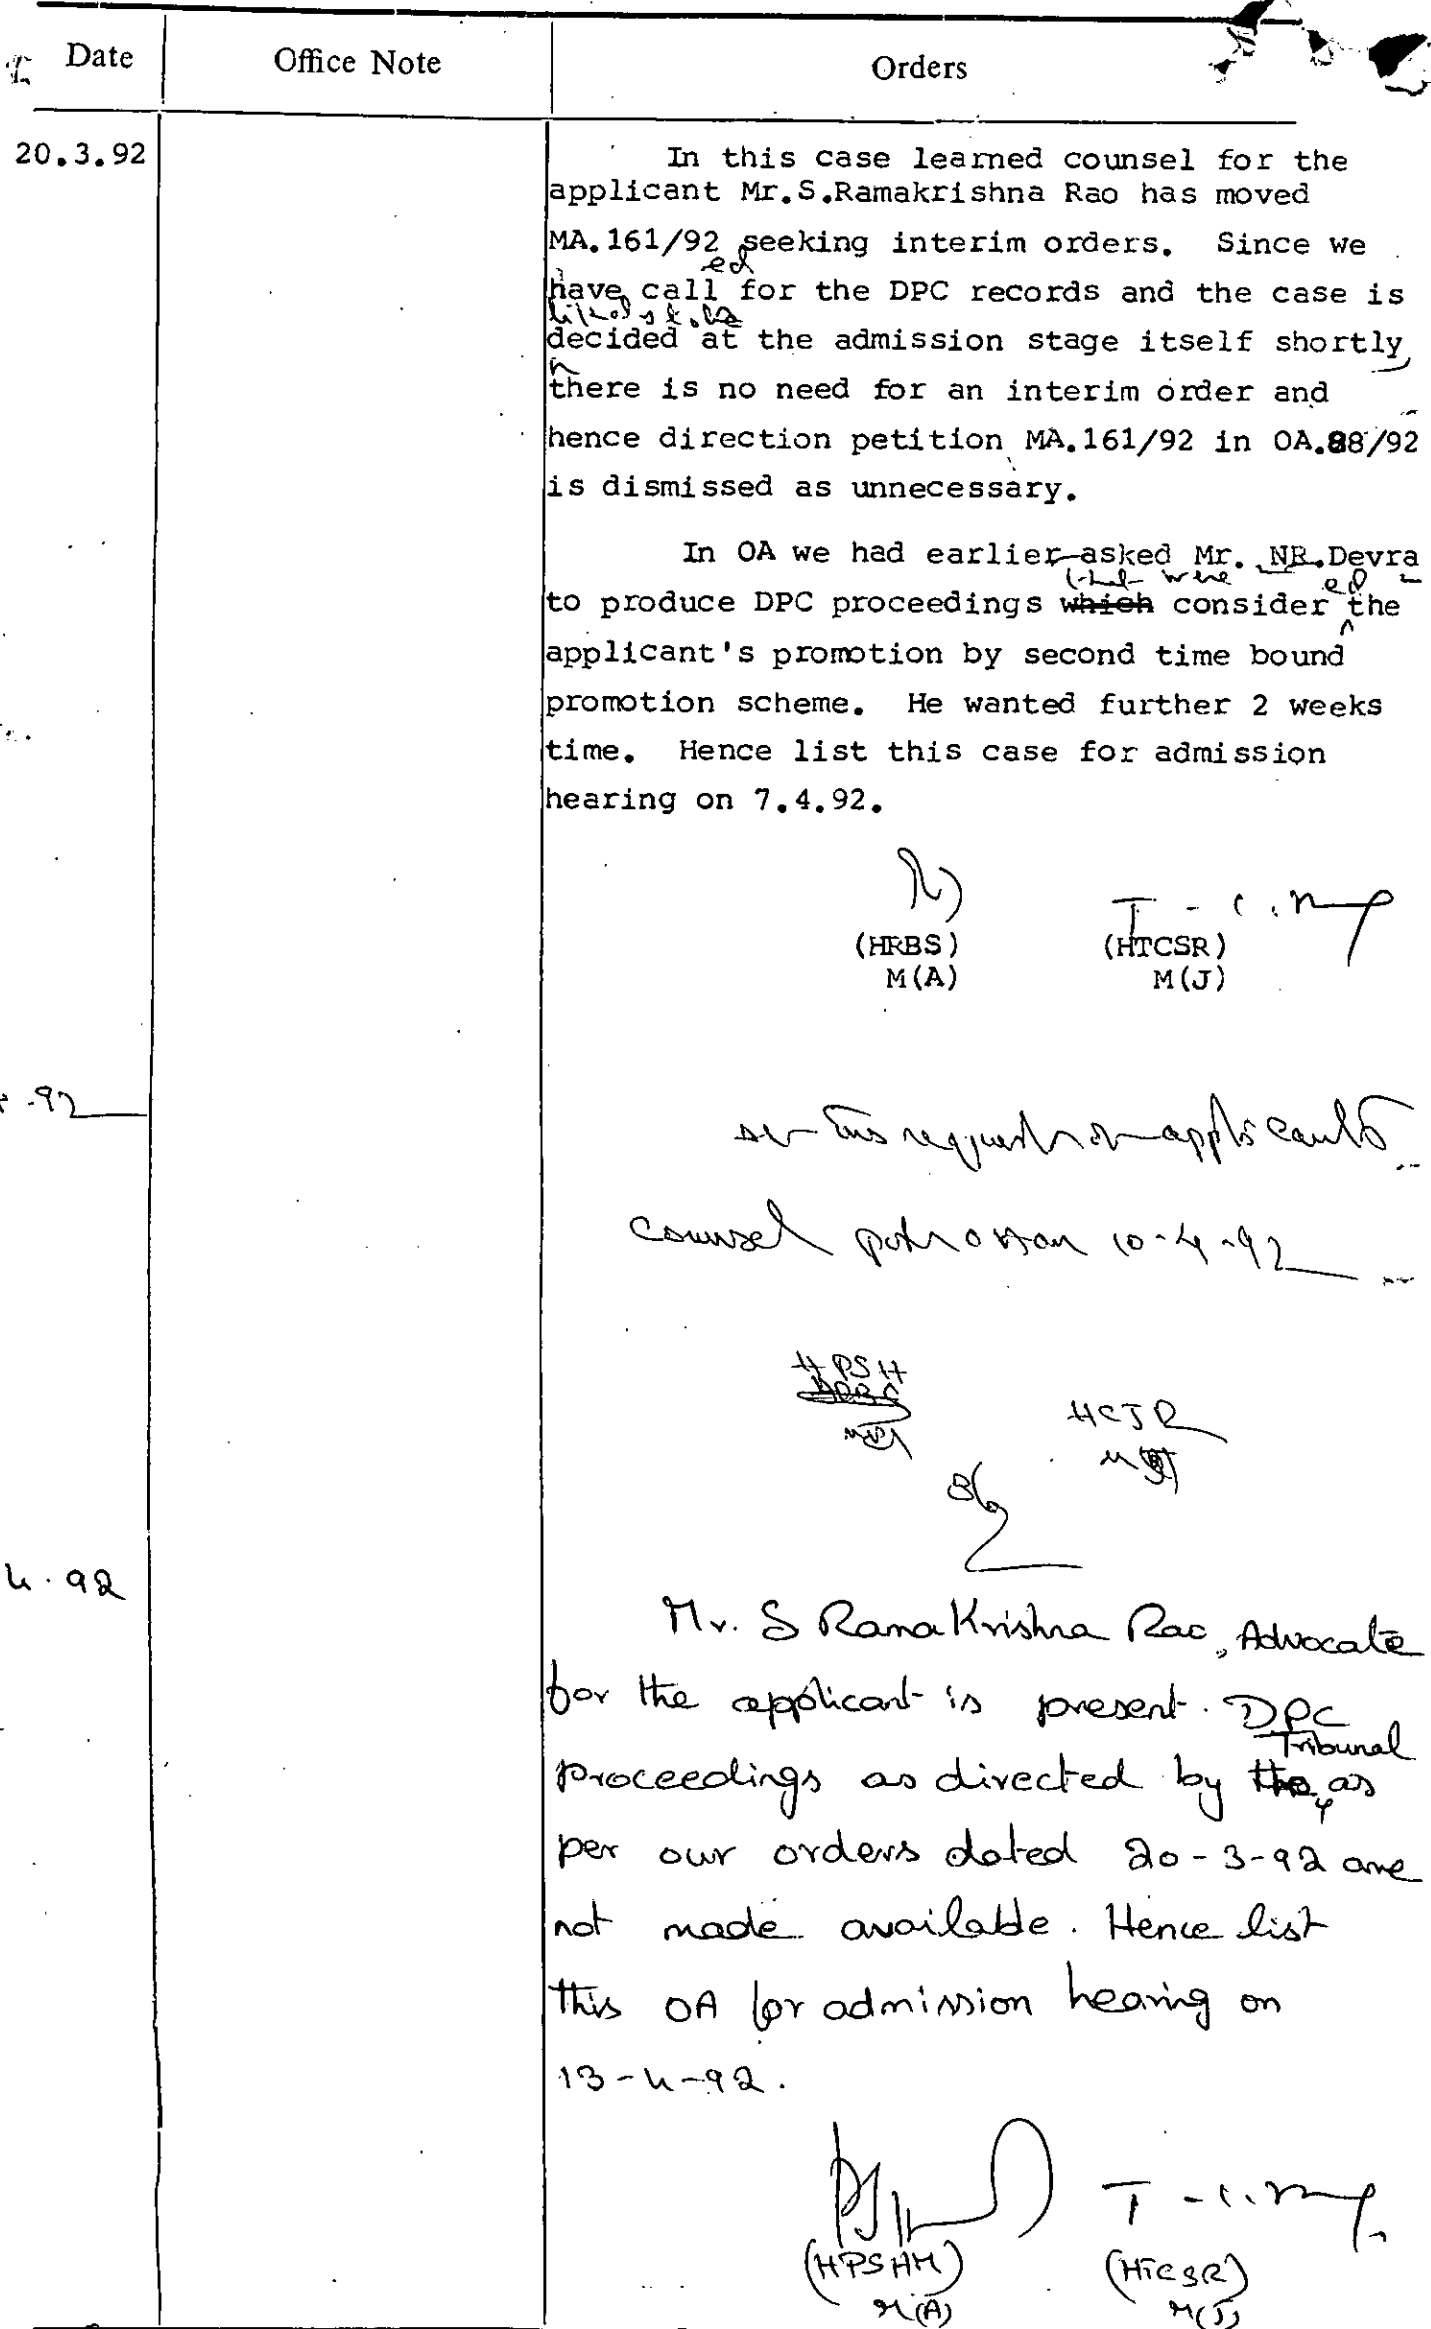 Date Office Note Orders
20.3.92
In this case learned counsel for the
applicant Mr.S.Ramakrishna Rao has moved
MA.161/92 seeking interim orders. Since we
ed
have call for the DPC records and the case is
decided at the admission stage itself shortly,
there is no need for an interim order and
hence direction petition MA.161/92 in OA.88/92
is dismissed as unnecessary.
In OA we had earlier asked Mr. NR.Devra
that were ed
to produce DPC proceedings which consider the
applicant's promotion by second time bound
promotion scheme. He wanted further 2 weeks
time. Hence list this case for admission
hearing on 7.4.92.
(HRBS) (HTCSR)
M(A) M(J)
-92
applicant's
counsel 10-4-92
HPSH
HCJR
4.92
Mr. S RamaKrishna Rao, Advocate
for the applicant is present. DPC
Tribunal
Proceedings as directed by the as
per our orders dated 20-3-92 are
not made available. Hence list
this OA for admission hearing on
13-4-92.
(HPSHM) (HTCSR)
M(A) M(J)